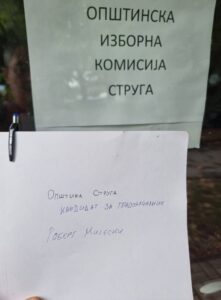 ОПШТИНСКА
ИЗБОРНА
КОМИСИЈА
СТРУГА
ОПШТИНА СТРУГА
КАНДИДАТ ЗА ГРАДОНАЧАЛНИК
РОБЕРТ